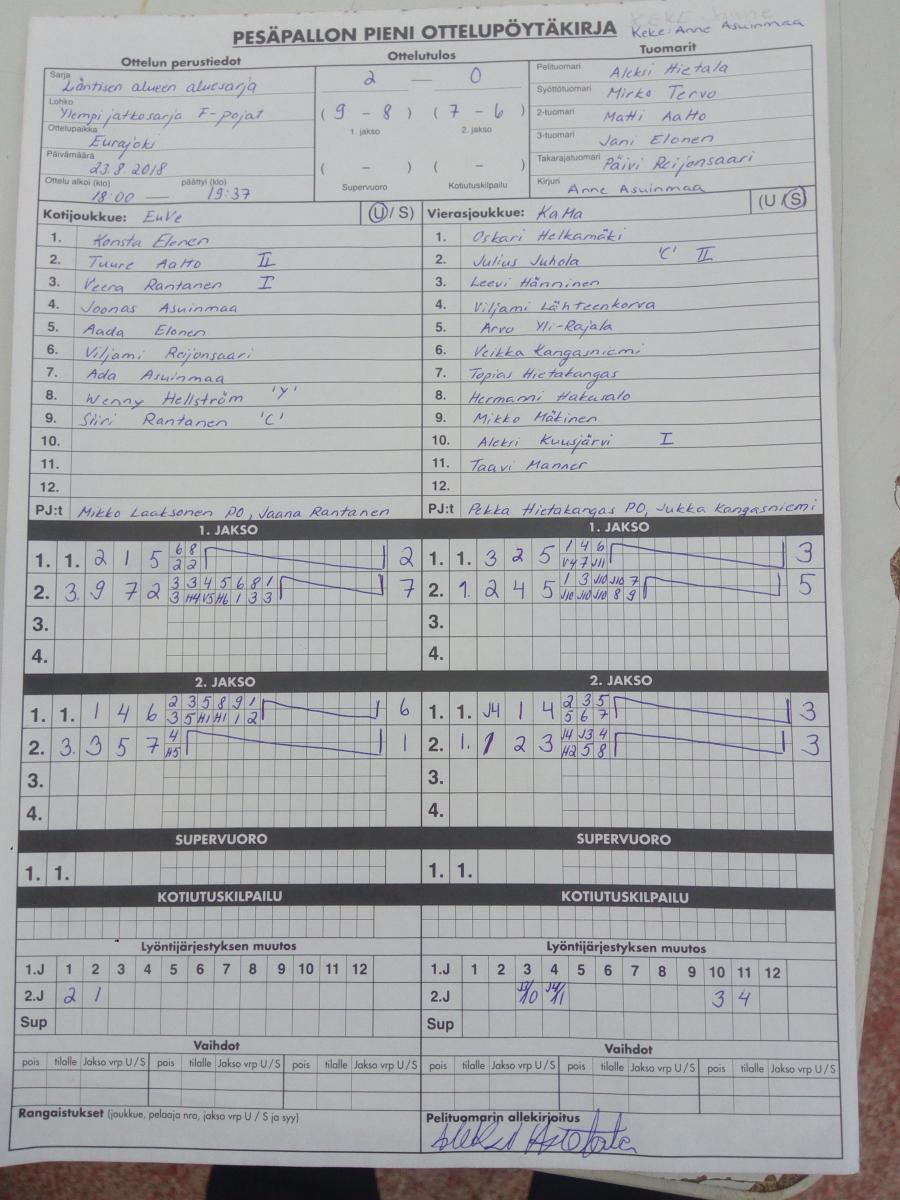 PESÄPALLON PIENI OTTELUPÖYTÄKIRJA
Keke: Anne Asuinmaa
Ottelun perustiedot
Sarja
Läntisen alueen aluesarja
Lohko
Ylempi jatkosarja F-pojat
Ottelupaikka
Eurajoki
Päivämäärä
23.8.2018
Ottelu alkoi (klo) päättyi (klo)
18:00 — 19:37
Ottelutulos
2 — 0
( 9 - 8 ) ( 7 - 6 )
1. jakso 2. jakso
( - ) ( - )
Supervuoro Kotiutuskilpailu
Tuomarit
Pelituomari Aleksi Hietala
Syöttötuomari Mirko Tervo
2-tuomari Matti Aalto
3-tuomari Jani Elonen
Takarajatuomari Päivi Reijonsaari
Kirjuri Anne Asuinmaa
Kotijoukkue: EuVe (U / S)
1. Konsta Elonen
2. Tuure Aalto II
3. Veera Rantanen I
4. Joonas Asuinmaa
5. Aada Elonen
6. Viljami Reijonsaari
7. Ada Asuinmaa
8. Wenny Hellström 'Y'
9. Siiri Rantanen 'C'
10.
11.
12.
PJ:t Mikko Laaksonen PO, Jaana Rantanen
Vierasjoukkue: KaMa (U / S)
1. Oskari Helkamäki
2. Julius Juhola 'C' II
3. Leevi Hänninen
4. Viljami Lähteenkorva
5. Arvo Yli-Rajala
6. Veikka Kangasniemi
7. Topias Hietakangas
8. Hermanni Hakusalo
9. Mikko Mäkinen
10. Aleksi Kuusjärvi I
11. Taavi Manner
12.
PJ:t Pekka Hietakangas PO, Jukka Kangasniemi
1. JAKSO
1. 1. 2 1 5 6 8 2
2 2
2. 3. 9 7 2 3 3 4 5 6 8 1 7
3 H4 V5 H6 1 3 3
3.
4.
1. JAKSO
1. 1. 3 2 5 1 4 6 3
V4 7 J11
2. 1. 2 4 5 1 3 J10 J10 7 5
J10 J10 J10 8 9
3.
4.
2. JAKSO
1. 1. 1 4 6 2 3 5 8 9 1 6
3 5 H1 H1 1 2
2. 3. 3 5 7 4 1
H5
3.
4.
2. JAKSO
1. 1. J4 1 4 2 3 5 3
5 6 7
2. 1. 1 2 3 J4 J3 4 3
H2 5 8
3.
4.
SUPERVUORO
1. 1.
SUPERVUORO
1. 1.
KOTIUTUSKILPAILU
KOTIUTUSKILPAILU
Lyöntijärjestyksen muutos
1.J 1 2 3 4 5 6 7 8 9 10 11 12
2.J 2 1
Sup
Lyöntijärjestyksen muutos
1.J 1 2 3 4 5 6 7 8 9 10 11 12
2.J J3/10 J4/11 3 4
Sup
Vaihdot
pois tilalle Jakso vrp U / S pois tilalle Jakso vrp U / S pois tilalle Jakso vrp U / S
Vaihdot
pois tilalle Jakso vrp U / S pois tilalle Jakso vrp U / S pois tilalle Jakso vrp U / S
Rangaistukset (joukkue, pelaaja nro, jakso vrp U / S ja syy)
Pelituomarin allekirjoitus